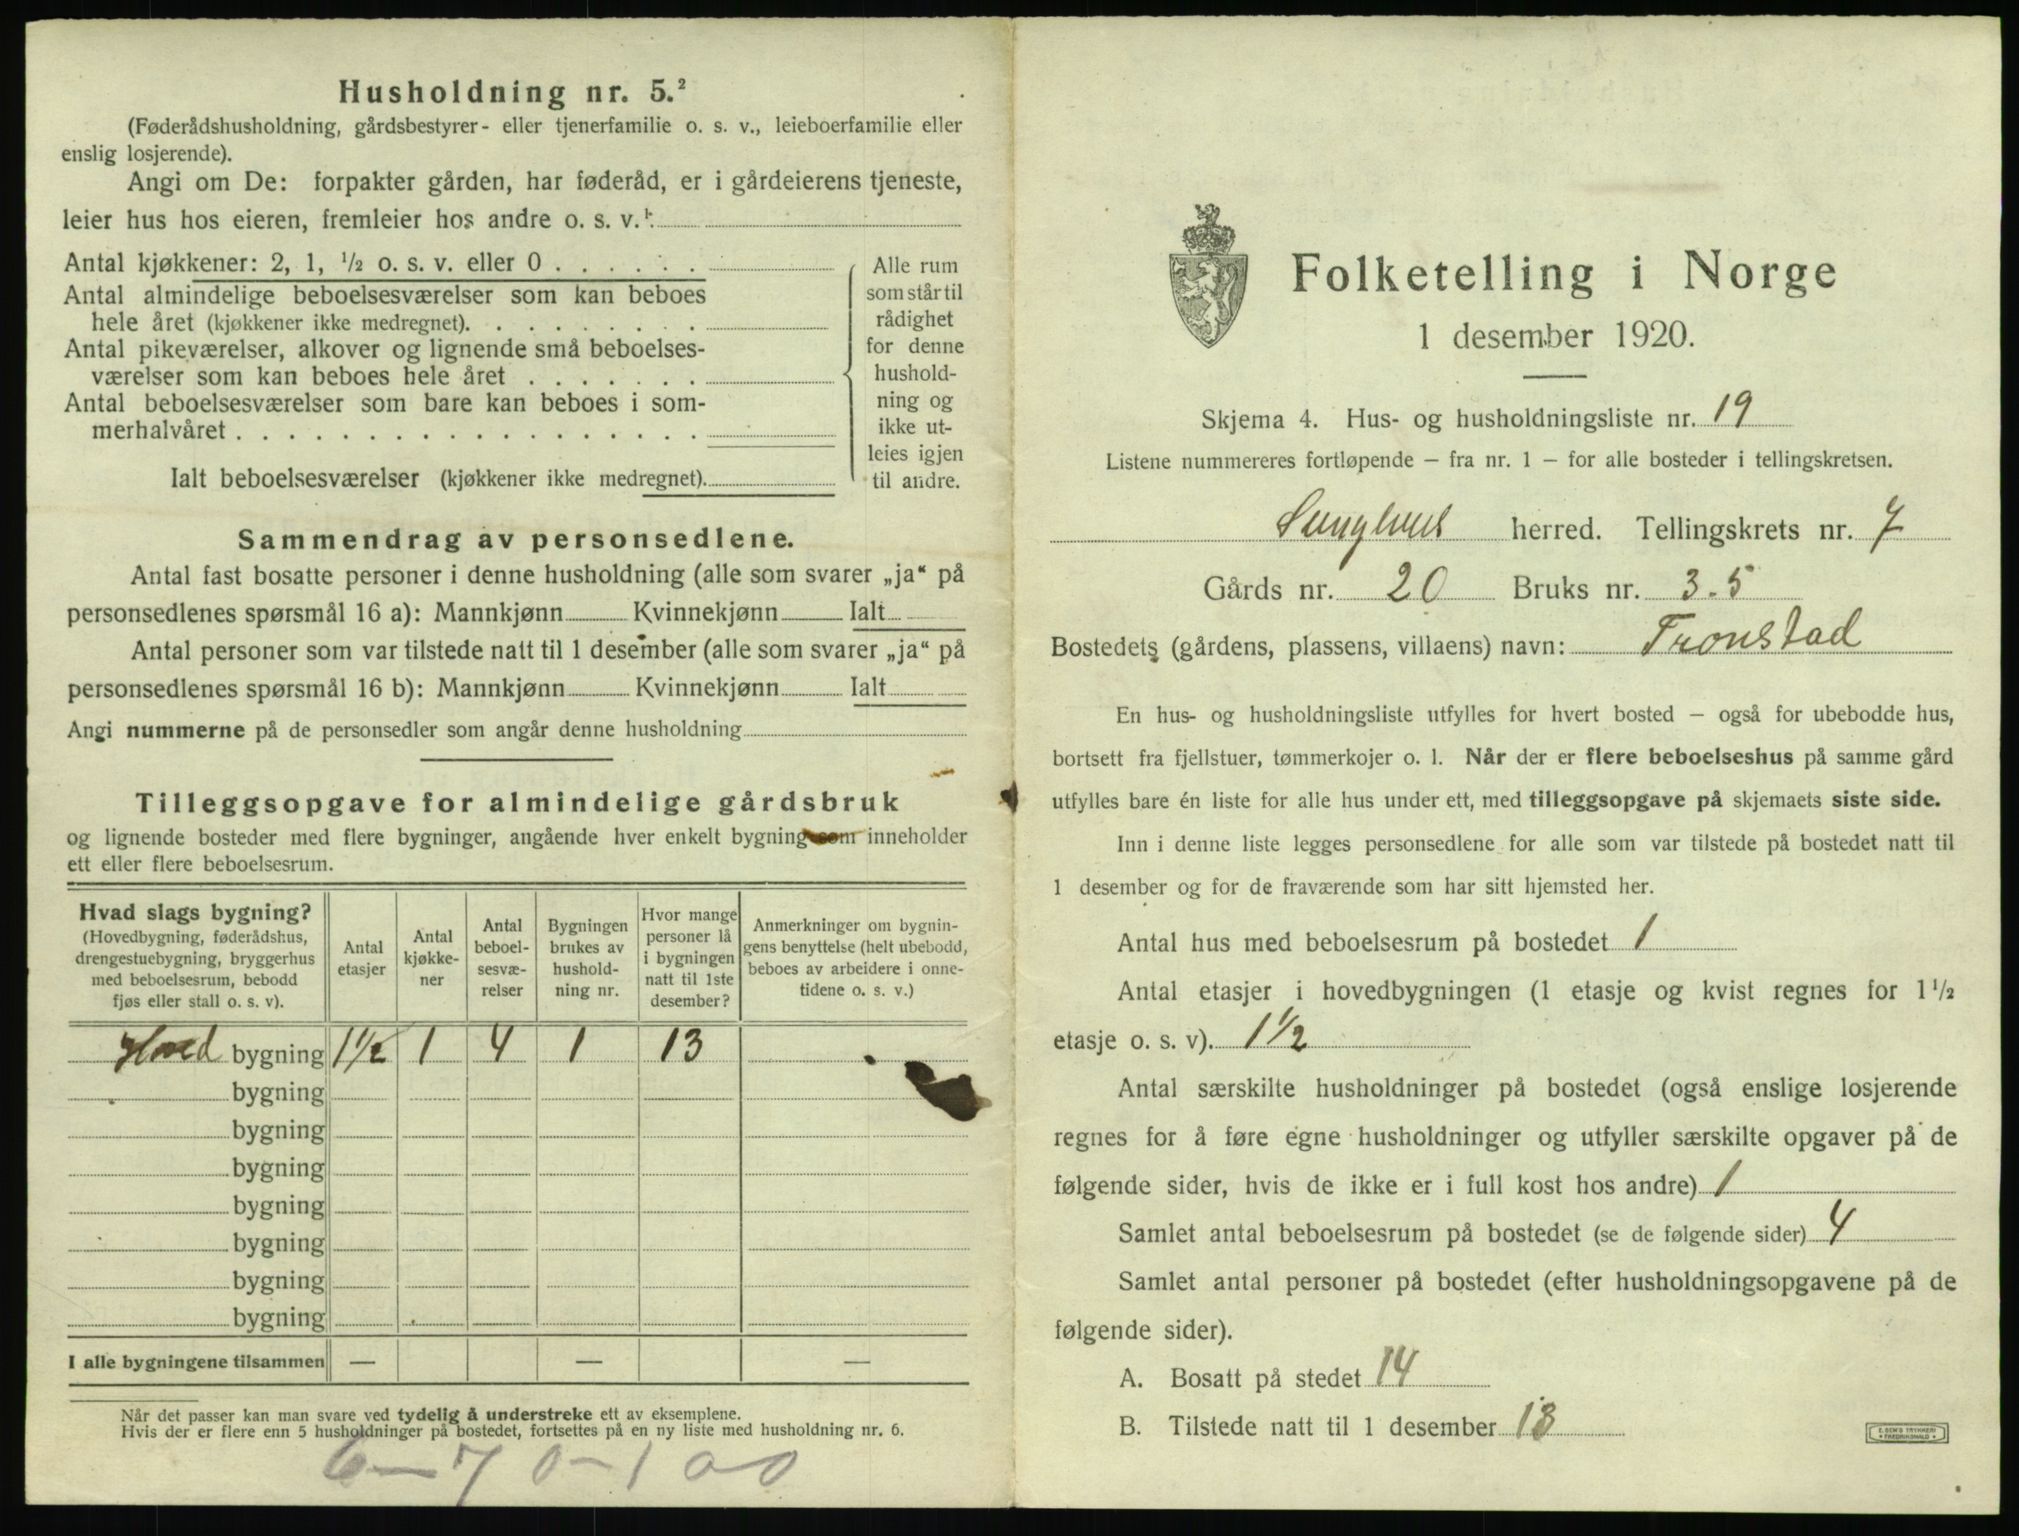 Husholdning nr. 5.²
(Føderådshusholdning, gårdsbestyrer- eller tjenerfamilie o. s. v., leieboerfamilie eller
enslig losjerende).
Angi om De: forpakter gården, har føderåd, er i gårdeierens tjeneste,
leier hus hos eieren, fremleier hos andre o. s. v.¹:
Antal kjøkkener: 2, 1, ½ o. s. v. eller 0 . . . . . .
Antal almindelige beboelsesværelser som kan beboes
hele året (kjøkkener ikke medregnet). . . . . . . . .
Antal pikeværelser, alkover og lignende små beboelses-
værelser som kan beboes hele året . . . . . . .
Antal beboelsesværelser som bare kan beboes i som-
merhalvåret . . . . . . . . . . . . . . . . . .
Ialt beboelsesværelser (kjøkkener ikke medregnet).
Alle rum
som står til
rådighet
for denne
hushold-
ning og
ikke ut-
leies igjen
til andre.
Sammendrag av personsedlene.
Antal fast bosatte personer i denne husholdning (alle som svarer „ja“ på
personsedlenes spørsmål 16 a): Mannkjønn Kvinnekjønn Ialt
Antal personer som var tilstede natt til 1 desember (alle som svarer „ja“ på
personsedlenes spørsmål 16 b): Mannkjønn Kvinnekjønn Ialt
Angi nummerne på de personsedler som angår denne husholdning
Tilleggsopgave for almindelige gårdsbruk
og lignende bosteder med flere bygninger, angående hver enkelt bygning som inneholder
ett eller flere beboelsesrum.
Hvad slags bygning?
(Hovedbygning, føderådshus,
drengestuebygning, bryggerhus
med beboelsesrum, bebodd
fjøs eller stall o. s. v).
Antal
etasjer
Antal
kjøkke-
ner
Antal
beboel-
sesvæ-
relser
Bygningen
brukes av
hushold-
ning nr.
Hvor mange
personer lå
i bygningen
natt til 1ste
desember?
Anmerkninger om bygnin-
gens benyttelse (helt ubebodd,
beboes av arbeidere i onne-
tidene o. s. v.)
Hoved bygning 1½ 1 4 1 13
bygning
bygning
bygning
bygning
bygning
bygning
bygning
I alle bygningene tilsammen — — —
Når det passer kan man svare ved tydelig å understreke ett av eksemplene.
Hvis der er flere enn 5 husholdninger på bostedet, fortsettes på en ny liste med husholdning nr. 6.
6-70-100
Folketelling i Norge
1 desember 1920.
Skjema 4. Hus- og husholdningsliste nr. 19
Listene nummereres fortløpende — fra nr. 1 — for alle bosteder i tellingskretsen.
herred. Tellingskrets nr. 7
Gårds nr. 20 Bruks nr. 3.5
Bostedets (gårdens, plassens, villaens) navn: Tronstad
En hus- og husholdningsliste utfylles for hvert bosted — også for ubebodde hus,
bortsett fra fjellstuer, tømmerkojer o. l. Når der er flere beboelseshus på samme gård
utfylles bare én liste for alle hus under ett, med tilleggsopgave på skjemaets siste side.
Inn i denne liste legges personsedlene for alle som var tilstede på bostedet natt til
1 desember og for de fraværende som har sitt hjemsted her.
Antal hus med beboelsesrum på bostedet 1
Antal etasjer i hovedbygningen (1 etasje og kvist regnes for 1½
etasje o. s. v). 1½
Antal særskilte husholdninger på bostedet (også enslige losjerende
regnes for å føre egne husholdninger og utfyller særskilte opgaver på de
følgende sider, hvis de ikke er i full kost hos andre) 1
Samlet antal beboelsesrum på bostedet (se de følgende sider) 4
Samlet antal personer på bostedet (efter husholdningsopgavene på de
følgende sider).
A. Bosatt på stedet 14
B. Tilstede natt til 1 desember 13